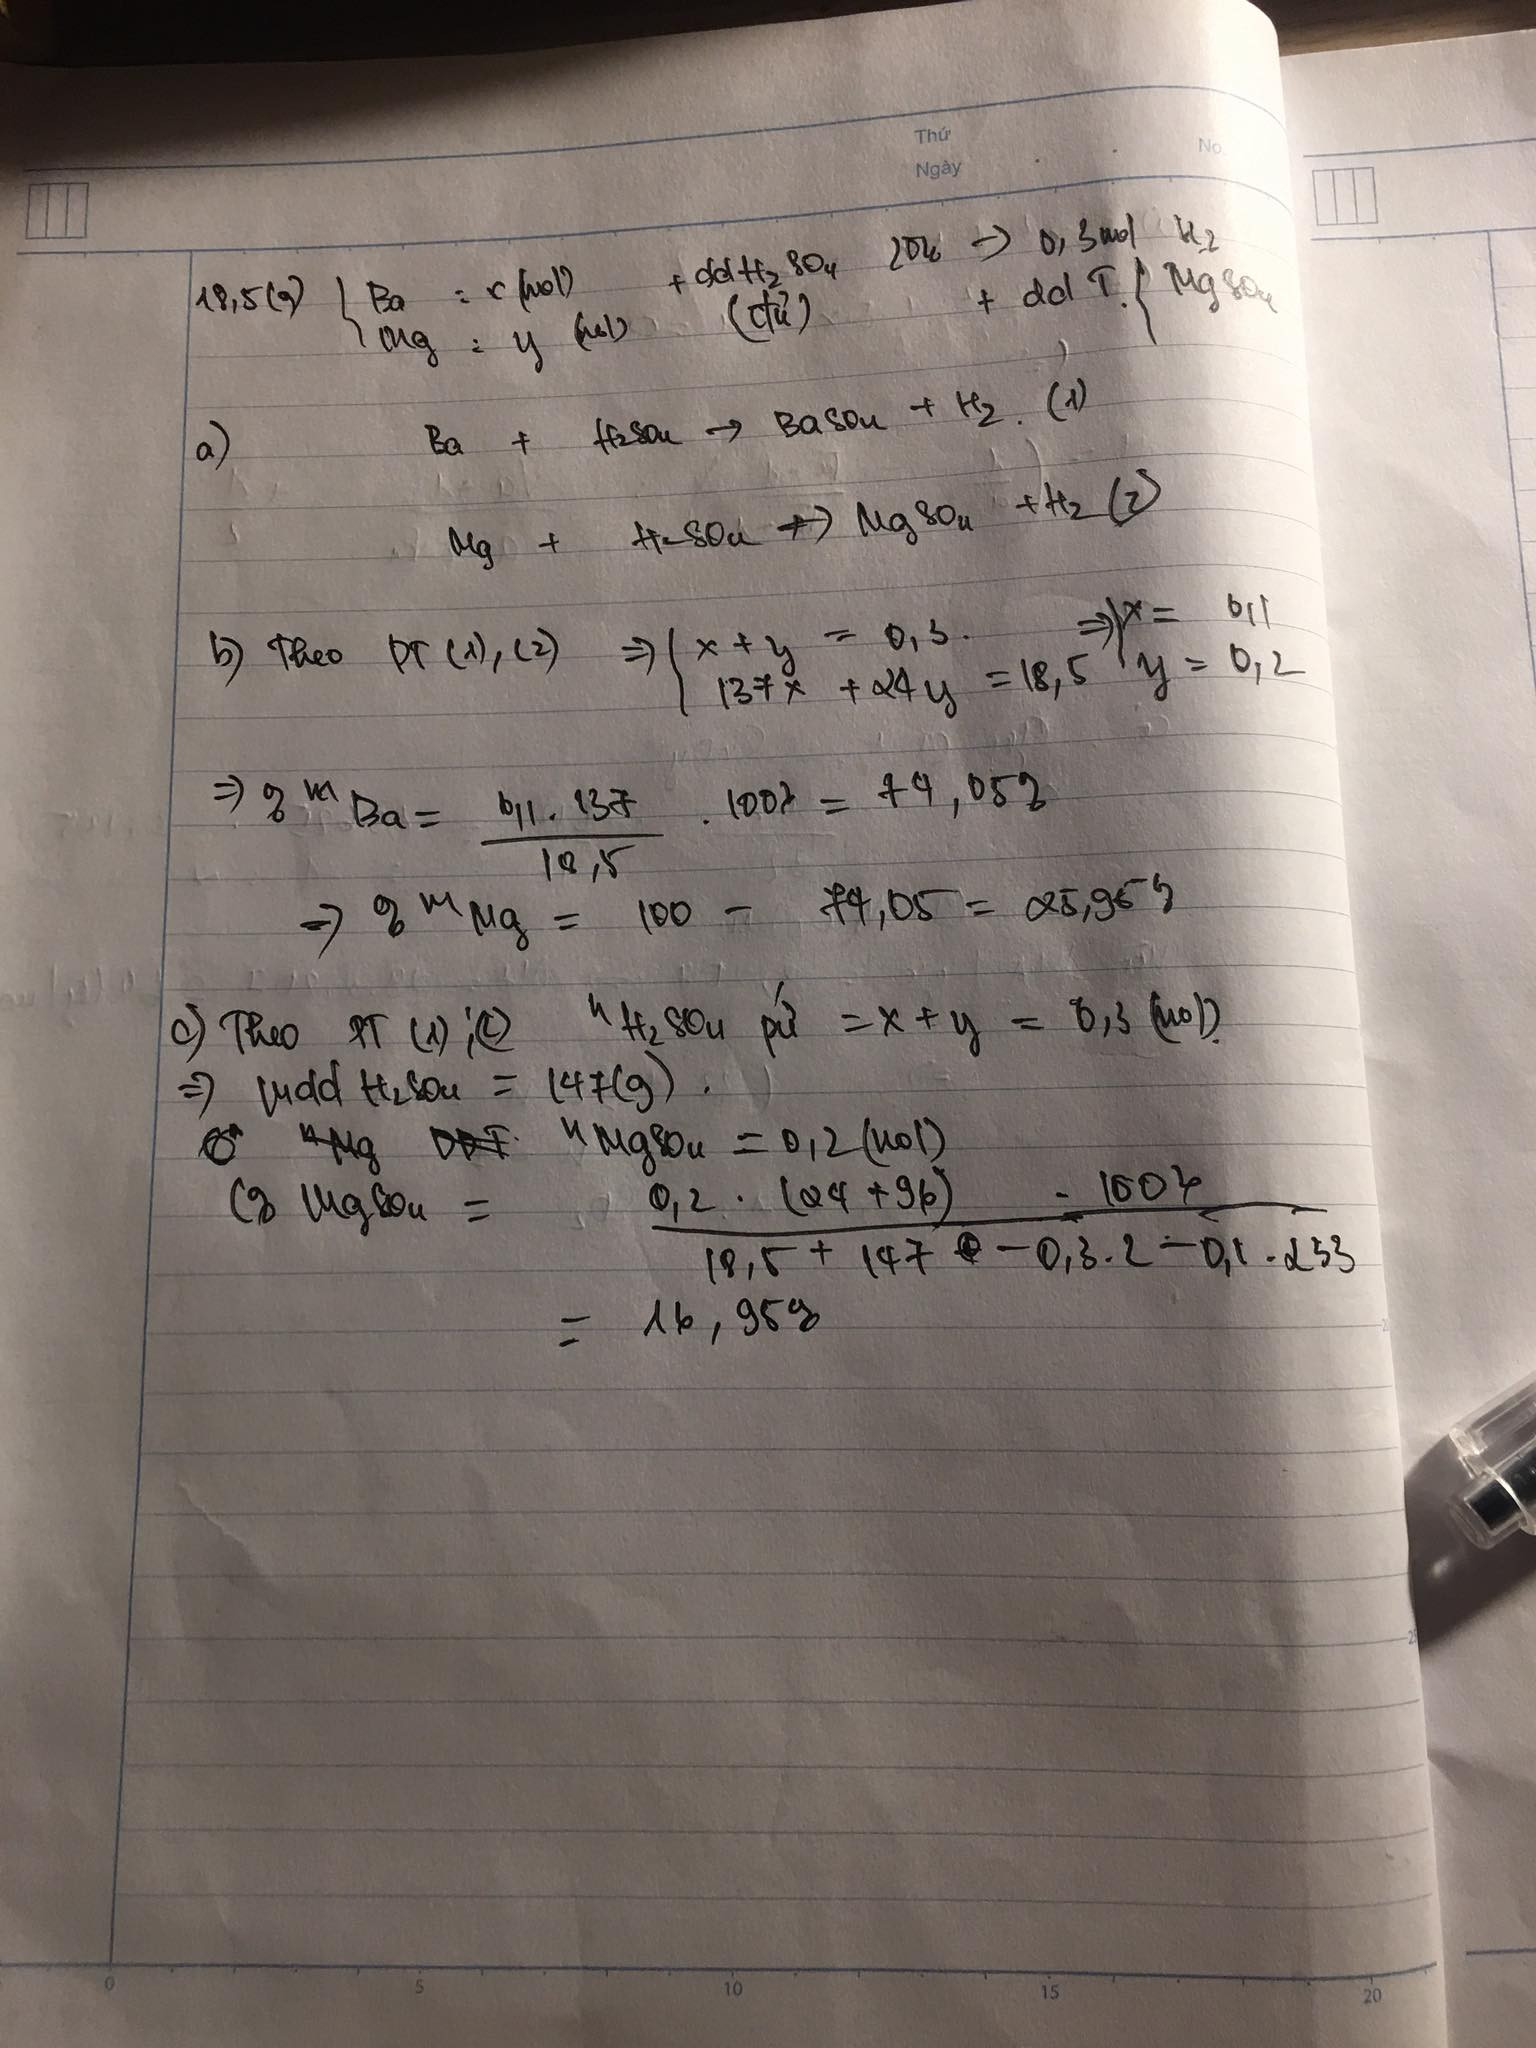 Thứ
Ngày
No.
18,5(g) { Ba : x (mol) + dd H2SO4 20% → 0,3 mol H2
Mg : y (mol) (đủ) + dd T. { MgSO4
a) Ba + H2SO4 → BaSO4 + H2. (1)
Mg + H2SO4 → MgSO4 + H2 (2)
b) Theo PT (1), (2) => { x + y = 0,3. => { x = 0,1
137x + 24y = 18,5 y = 0,2
=> % m Ba = 0,1 . 137 / 18,5 . 100% = 74,05%
=> % m Mg = 100 - 74,05 = 25,95%
c) Theo PT (1), (2) n H2SO4 pứ = x + y = 0,3 (mol).
=> mdd H2SO4 = 147(g).
n MgSO4 = 0,2 (mol)
C% MgSO4 = 0,2 . (24 + 96) . 100% / 18,5 + 147 - 0,3.2 - 0,1 . 233
= 16,95%
0 5 10 15 20